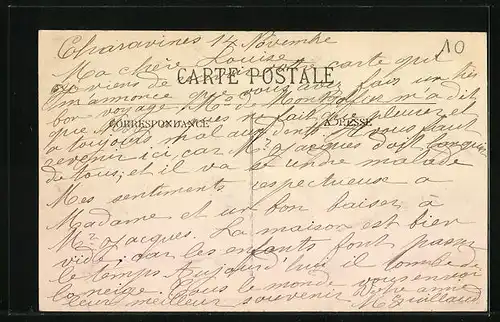 Charavines 14 Novembre
10
Ma chère Louise
viens de votre carte qui
CARTE POSTALE
m'annonce que vous avez fais un très
bon voyage Mr de m'a dit
CORRESPONDANCE
ADRESSE
que ne fait que pleurer et
a toujours mal aux dents vous faut
revenir ici, car Mr Jacques doit
de tous, et il va se rendre malade
Mes sentiments respectueux a
Madame et un bon baiser à
Mr Jacques. La maison est bien
vide, car les enfants font passer
le temps Aujourd'hui il tombe de
la neige. Tous le monde vous envoi
leur meilleur souvenir Votre amie
M Guillaud